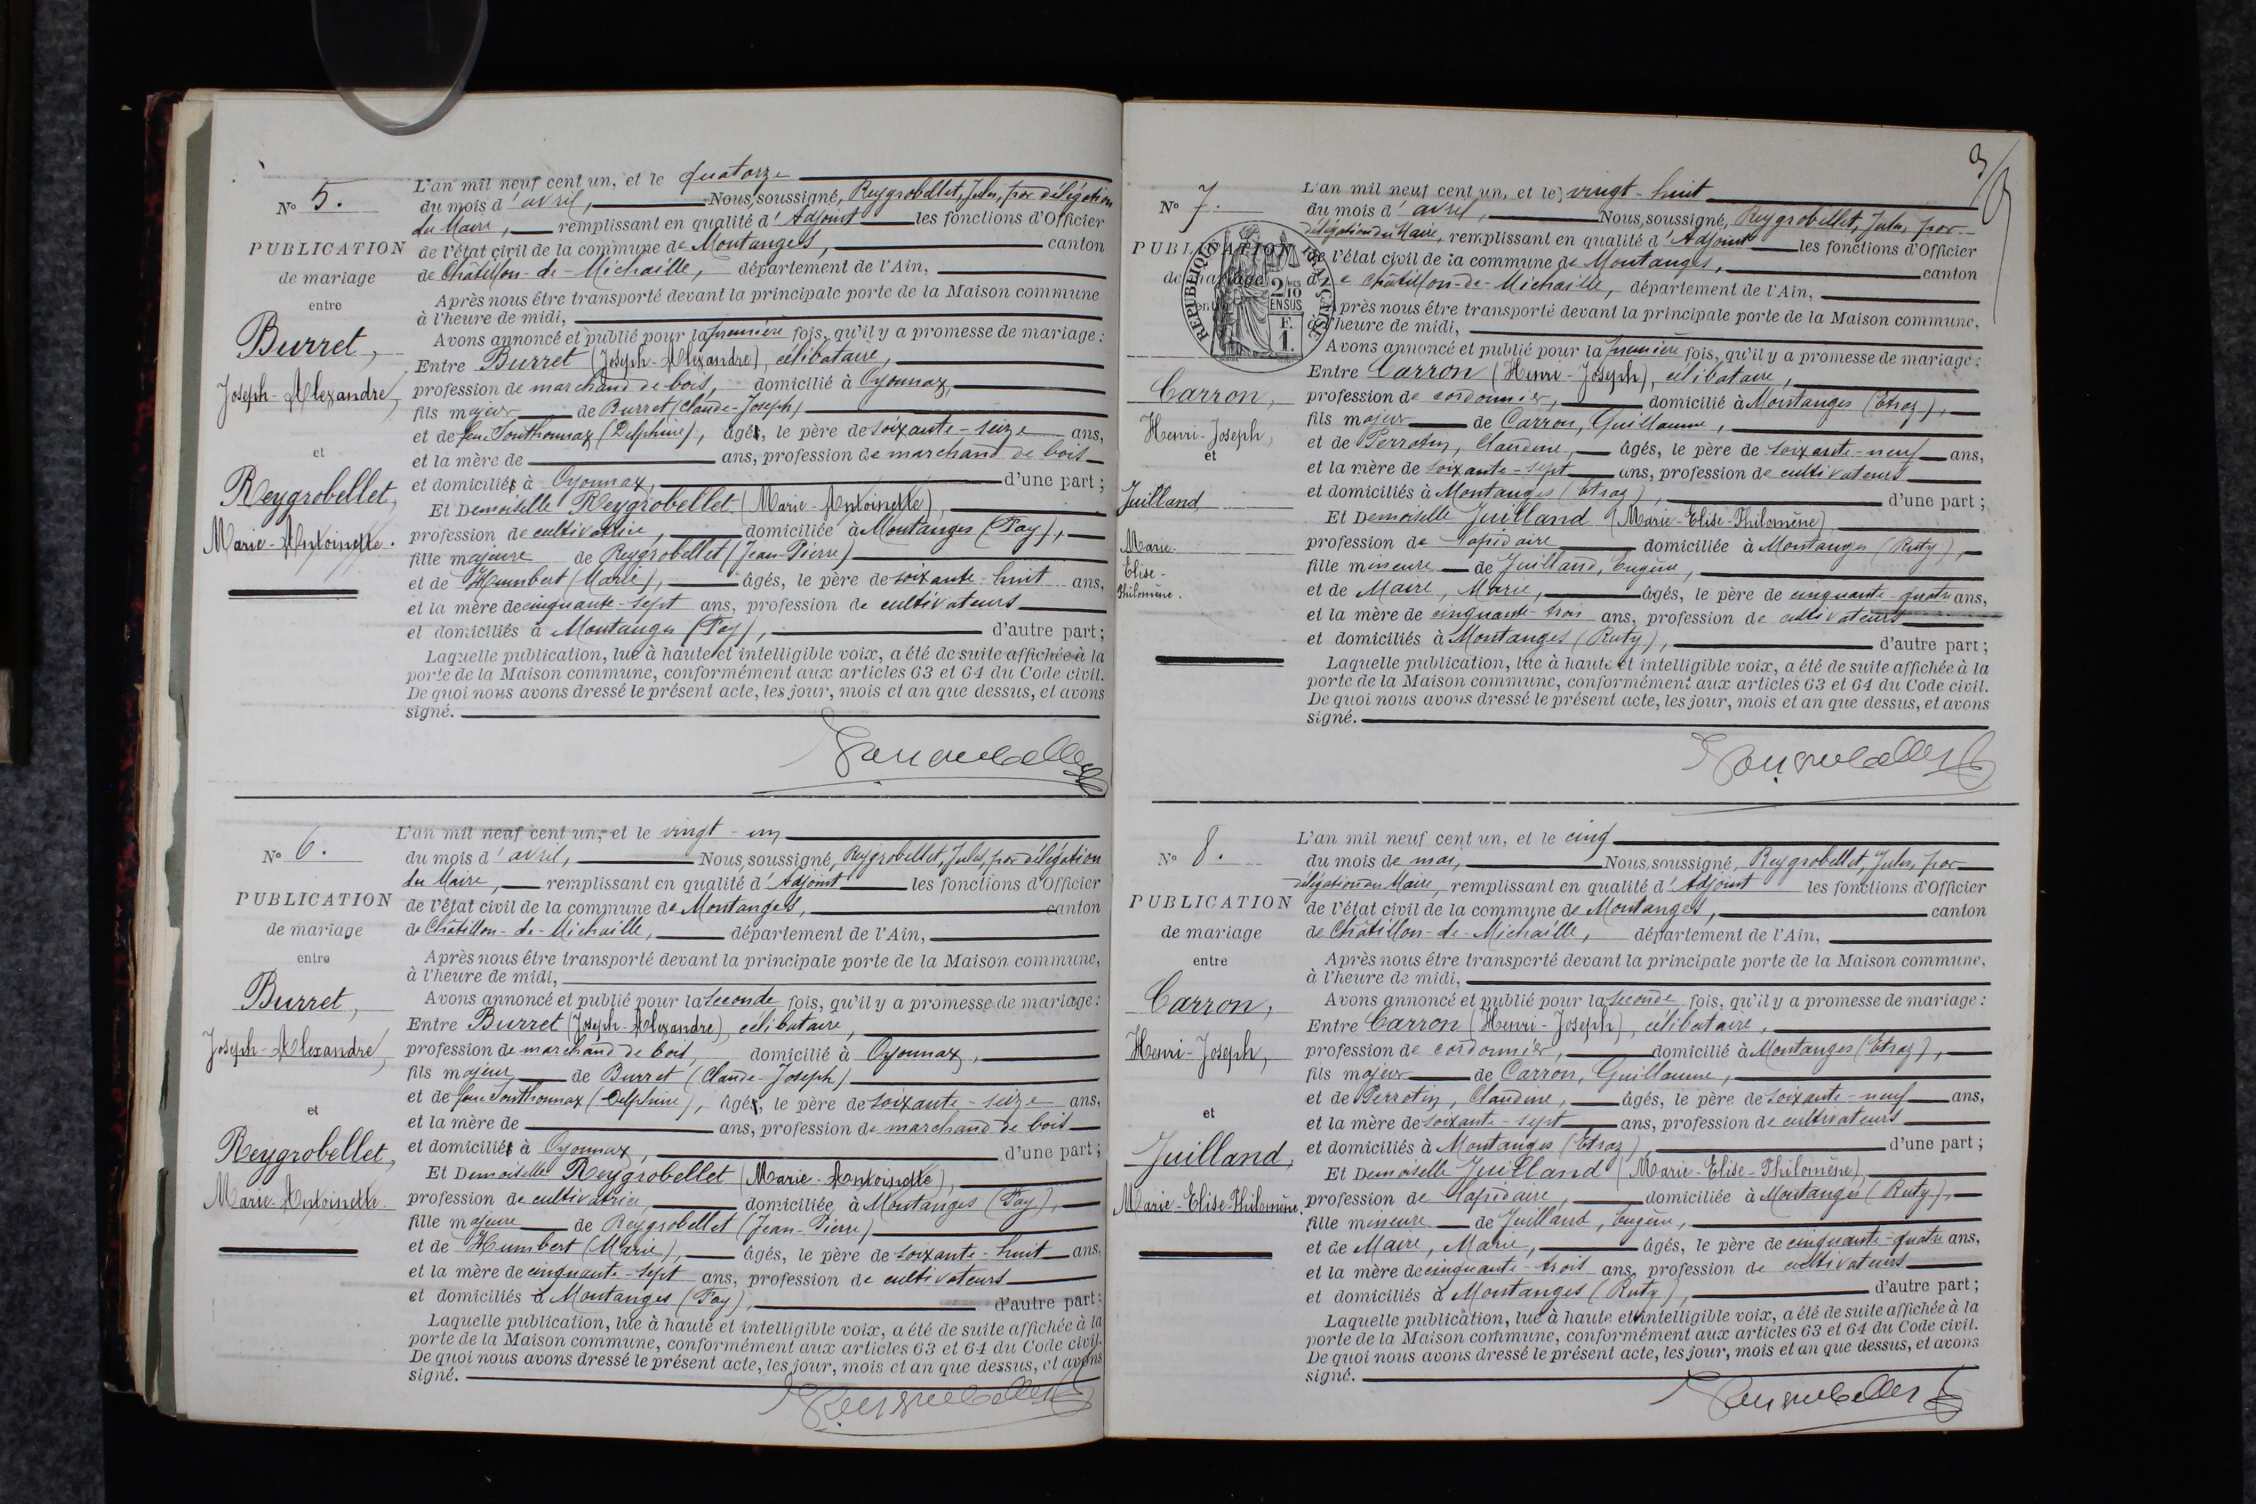 N° 5.
PUBLICATION
de mariage
entre
Burret,
Joseph-Alexandre,
et
Reygrobellet,
Marie-Antoinette.
L'an mil neuf cent un, et le quatorze
du mois d'avril, Nous, soussigné, Reygrobellet, Jules, par délégation
du Maire, remplissant en qualité d'Adjoint les fonctions d'Officier
de l'état civil de la commune de Montanges, canton
de Châtillon-de-Michaille, département de l'Ain,
Après nous être transporté devant la principale porte de la Maison commune
à l'heure de midi,
Avons annoncé et publié pour la première fois, qu'il y a promesse de mariage:
Entre Burret (Joseph-Alexandre), célibataire,
profession de marchand de bois, domicilié à Oyonnax,
fils majeur de Burret (Claude-Joseph)
et de feue Tonthonnax (Delphine), âgé, le père de soixante-seize ans,
et la mère de ans, profession de marchand de bois
et domicilié à Oyonnax, d'une part;
Et Demoiselle Reygrobellet (Marie-Antoinette),
profession de cultivatrice, domiciliée à Montanges (Fay),
fille majeure de Reygrobellet (Jean-Pierre)
et de Humbert (Marie), âgés, le père de soixante-huit ans,
et la mère de cinquante-sept ans, profession de cultivateurs
et domiciliés à Montanges (Fay), d'autre part;
Laquelle publication, lue à haute et intelligible voix, a été de suite affichée à la
porte de la Maison commune, conformément aux articles 63 et 64 du Code civil.
De quoi nous avons dressé le présent acte, les jour, mois et an que dessus, et avons
signé.
Reygrobellet
N° 6.
PUBLICATION
de mariage
entre
Burret,
Joseph-Alexandre,
et
Reygrobellet,
Marie-Antoinette.
L'an mil neuf cent un, et le vingt-un
du mois d'avril, Nous, soussigné, Reygrobellet, Jules, par délégation
du Maire, remplissant en qualité d'Adjoint les fonctions d'Officier
de l'état civil de la commune de Montanges, canton
de Châtillon-de-Michaille, département de l'Ain,
Après nous être transporté devant la principale porte de la Maison commune,
à l'heure de midi,
Avons annoncé et publié pour la seconde fois, qu'il y a promesse de mariage:
Entre Burret (Joseph-Alexandre), célibataire,
profession de marchand de bois, domicilié à Oyonnax,
fils majeur de Burret (Claude-Joseph)
et de feue Tonthonnax (Delphine), âgé, le père de soixante-seize ans,
et la mère de ans, profession de marchand de bois
et domicilié à Oyonnax, d'une part;
Et Demoiselle Reygrobellet (Marie-Antoinette),
profession de cultivatrice, domiciliée à Montanges (Fay),
fille majeure de Reygrobellet (Jean-Pierre)
et de Humbert (Marie), âgés, le père de soixante-huit ans,
et la mère de cinquante-sept ans, profession de cultivateurs
et domiciliés à Montanges (Fay), d'autre part;
Laquelle publication, lue à haute et intelligible voix, a été de suite affichée à la
porte de la Maison commune, conformément aux articles 63 et 64 du Code civil.
De quoi nous avons dressé le présent acte, les jour, mois et an que dessus, et avons
signé.
Reygrobellet
3
N° 7.
PUBLICATION
de mariage
entre
REPUBLIQUE FRANÇAISE
2/10 EN SUS
F. 1.
Carron,
Henri-Joseph,
et
Juilland
Marie-
Elise-
Philomène.
L'an mil neuf cent un, et le vingt-huit
du mois d'avril, Nous, soussigné, Reygrobellet, Jules, par
délégation du Maire, remplissant en qualité d'Adjoint les fonctions d'Officier
de l'état civil de la commune de Montanges, canton
de Châtillon-de-Michaille, département de l'Ain,
Après nous être transporté devant la principale porte de la Maison commune,
à l'heure de midi,
Avons annoncé et publié pour la première fois, qu'il y a promesse de mariage:
Entre Carron (Henri-Joseph), célibataire,
profession de cordonnier, domicilié à Montanges (Etraz),
fils majeur de Carron, Guillaume,
et de Perrotin, Claudine, âgés, le père de soixante-neuf ans,
et la mère de soixante-sept ans, profession de cultivateurs
et domiciliés à Montanges (Etraz), d'une part;
Et Demoiselle Juilland (Marie-Elise-Philomène)
profession de lapidaire domiciliée à Montanges (Ruty),
fille mineure de Juilland, Eugène,
et de Maire, Marie, âgés, le père de cinquante-quatre ans,
et la mère de cinquante-trois ans, profession de cultivateurs
et domiciliés à Montanges (Ruty), d'autre part;
Laquelle publication, lue à haute et intelligible voix, a été de suite affichée à la
porte de la Maison commune, conformément aux articles 63 et 64 du Code civil.
De quoi nous avons dressé le présent acte, les jour, mois et an que dessus, et avons
signé.
Reygrobellet
N° 8.
PUBLICATION
de mariage
entre
Carron,
Henri-Joseph,
et
Juilland,
Marie-Elise-Philomène.
L'an mil neuf cent un, et le cinq
du mois de mai, Nous, soussigné, Reygrobellet, Jules, par
délégation du Maire, remplissant en qualité d'Adjoint les fonctions d'Officier
de l'état civil de la commune de Montanges, canton
de Châtillon-de-Michaille, département de l'Ain,
Après nous être transporté devant la principale porte de la Maison commune,
à l'heure de midi,
Avons annoncé et publié pour la seconde fois, qu'il y a promesse de mariage:
Entre Carron (Henri-Joseph), célibataire,
profession de cordonnier, domicilié à Montanges (Etraz),
fils majeur de Carron, Guillaume,
et de Perrotin, Claudine, âgés, le père de soixante-neuf ans,
et la mère de soixante-sept ans, profession de cultivateurs
et domiciliés à Montanges (Etraz), d'une part;
Et Demoiselle Juilland (Marie-Elise-Philomène),
profession de lapidaire, domiciliée à Montanges (Ruty),
fille mineure de Juilland, Eugène,
et de Maire, Marie, âgés, le père de cinquante-quatre ans,
et la mère de cinquante-trois ans, profession de cultivateurs
et domiciliés à Montanges (Ruty), d'autre part;
Laquelle publication, lue à haute et intelligible voix, a été de suite affichée à la
porte de la Maison commune, conformément aux articles 63 et 64 du Code civil.
De quoi nous avons dressé le présent acte, les jour, mois et an que dessus, et avons
signé.
Reygrobellet